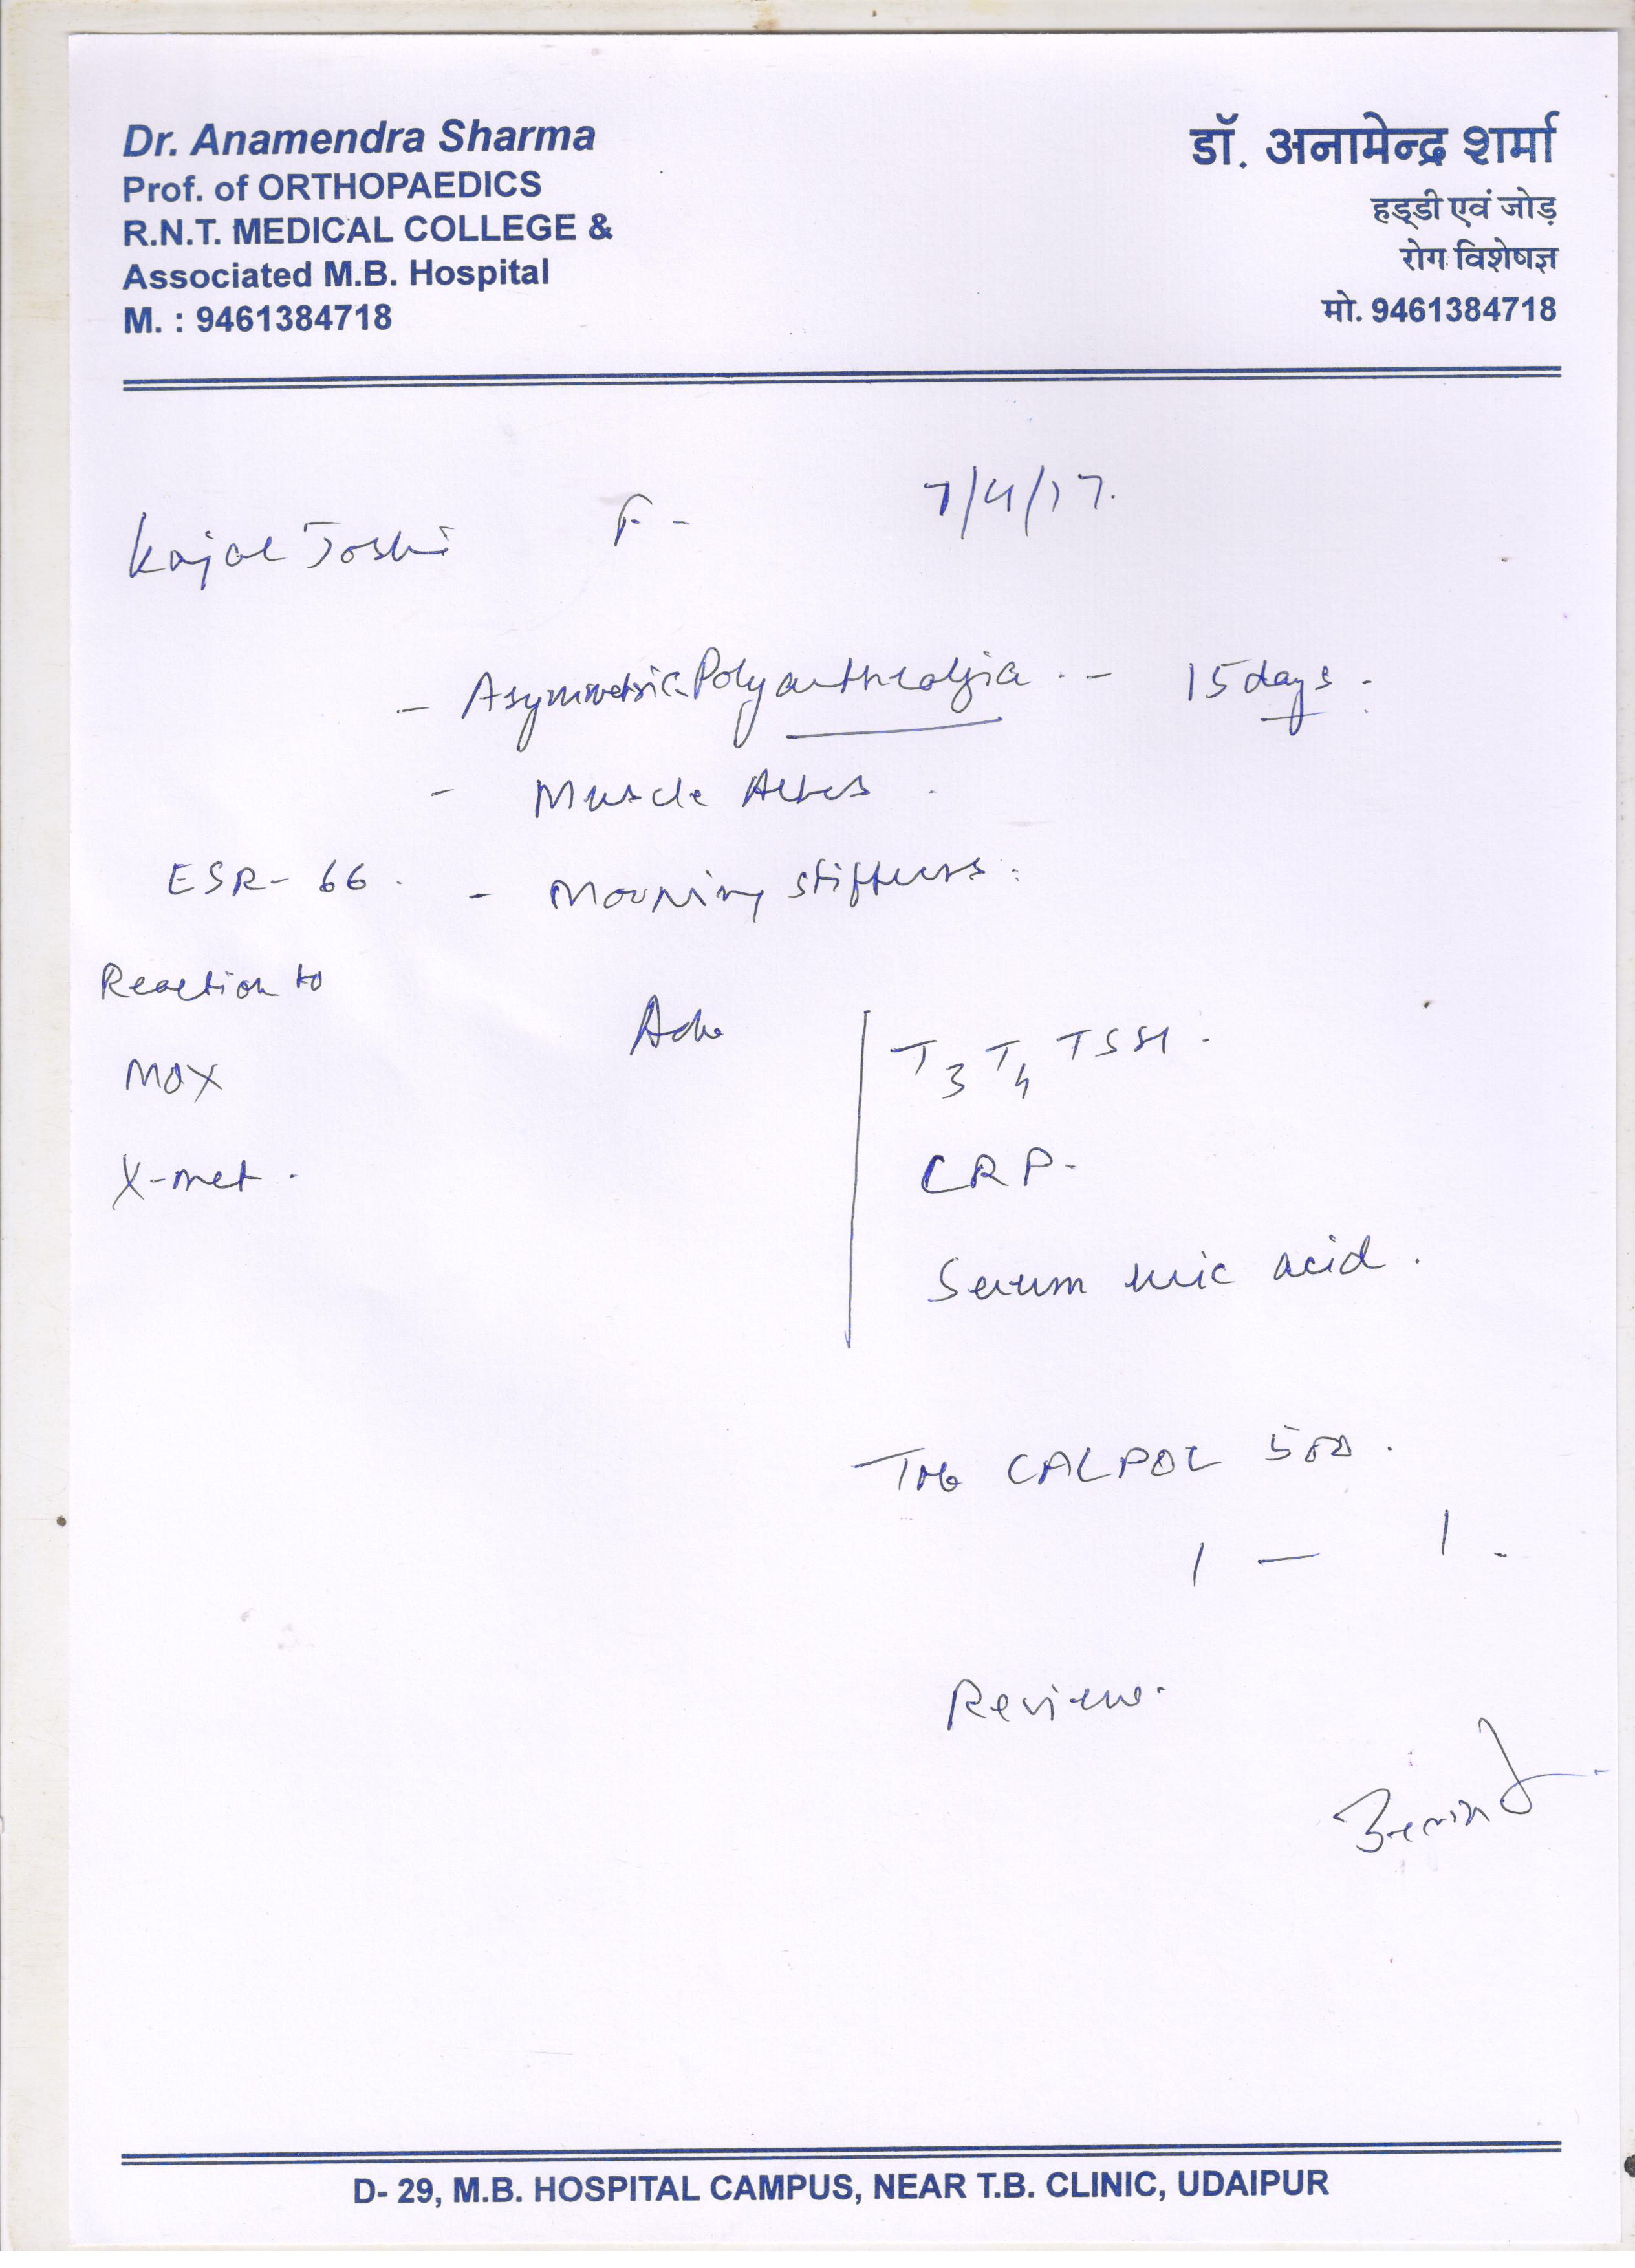 Dr. Anamendra Sharma
Prof. of ORTHOPAEDICS
R.N.T. MEDICAL COLLEGE &
Associated M.B. Hospital
M. : 9461384718
डॉ. अनामेन्द्र शर्मा
हड्डी एवं जोड़
रोग विशेषज्ञ
मो. 9461384718
Kajal Joshi F - 7/4/17.
- Asymmetric Polyarthralgia. - 15 days.
- Muscle Aches.
ESR- 66. - Morning stiffness.
Reaction to
MOX
X-met.
Adv
T3 T4 TSH.
CRP-
Serum uric acid.
Tab CALPOL 500.
1 — 1.
Review.
D- 29, M.B. HOSPITAL CAMPUS, NEAR T.B. CLINIC, UDAIPUR